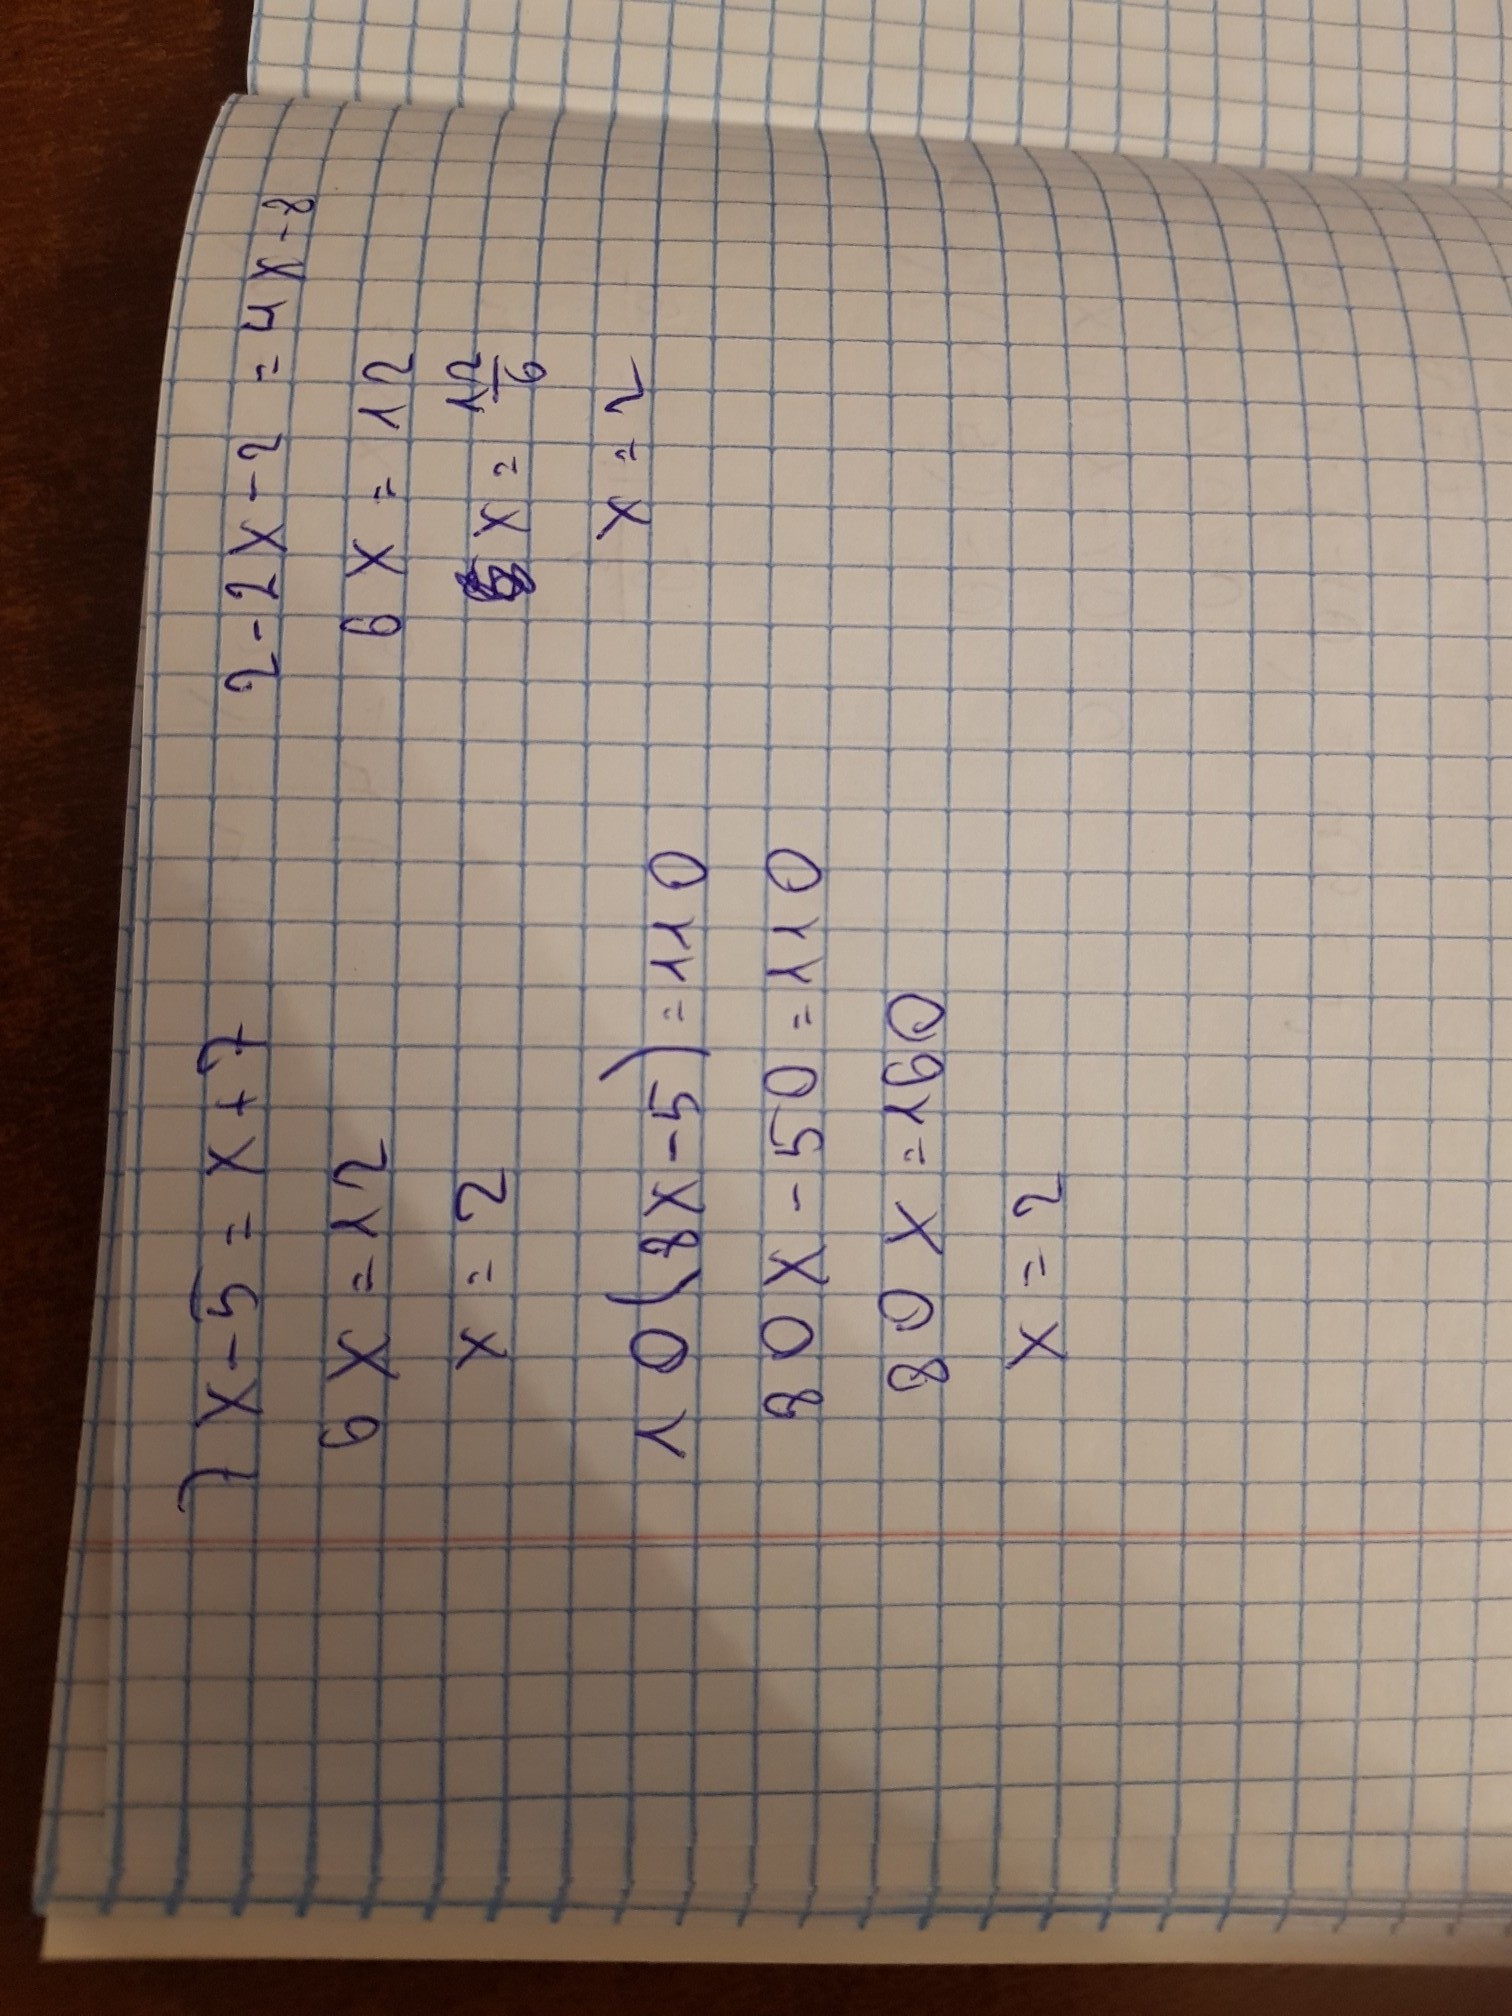 7x-5=x+7
6x=12
x=2
10(8x-5)=110
80x-50=110
80x=160
x=2
2-2x-2=4x-8
6x=12
x=12/6
x=2